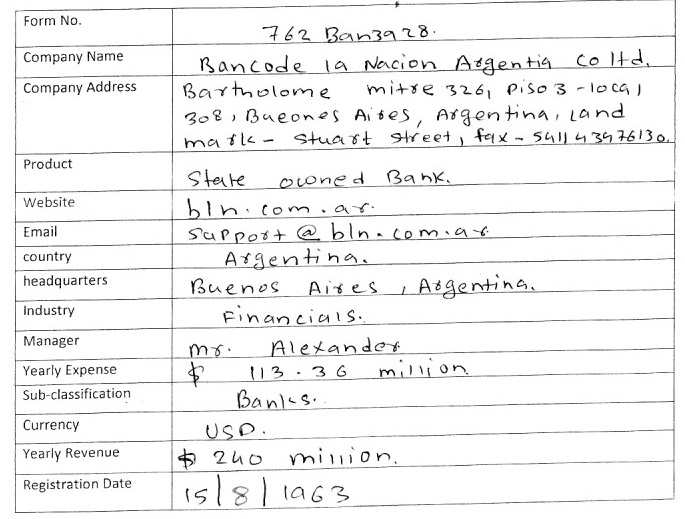 Form No. 762 Banza28.
Company Name Bancode la Nacion Argentia Co ltd.
Company Address Bartholome mitre 326, Piso 3 - local
308, Bueones Aires, Argentina, Land
mark - Stuart Street, fax - 541143476130.
Product State owned Bank.
Website bln.com.ar.
Email Support@bln.com.ar
country Argentina.
headquarters Buenos Aires, Argentina.
Industry Financials.
Manager mr. Alexander
Yearly Expense $ 113.36 million
Sub-classification Banks.
Currency USD.
Yearly Revenue $ 240 million.
Registration Date 15/8/1963